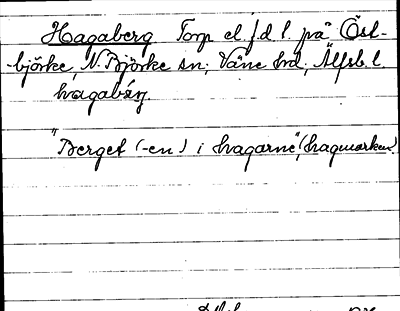 Hagaberg Torp el. f.d. l. på Öst-
-björke, N. Björke sn; Väne hd, Älfsb. l.
hagabärj
"Berget (-en) i hagarne" (hagmarken)